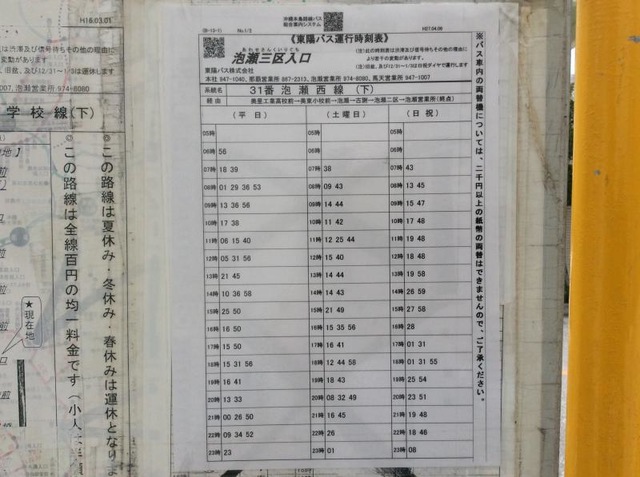 H16.03.01
沖縄本島路線バス
総合案内システム
(B-13-1)
No.1/2
H27.04.06
《東陽バス運行時刻表》
あわせさんくいりぐち
泡瀬三区入口
(注)此の時刻表は渋滞及び信号待ちその他の理由に
より若干の変動があります。
(注)旧盆、及び12/31~1/3は日祝ダイヤで運行します
東陽バス株式会社
本社 947-1040, 那覇営業所 867-2313, 泡瀬営業所 974-8080, 馬天営業所 947-1007
系統
31番 泡瀬西線 (下)
経由
美里工業高校前→美東小校前→泡瀬→古謝→泡瀬二区→泡瀬営業所(終点)
(平 日) (土 曜 日) (日 祝)
05時 05時 05時
06時 56 06時 06時
07時 18 39 07時 38 07時 43
08時 01 29 36 53 08時 09 43 08時 13 45
09時 13 36 56 09時 14 44 09時 15 47
10時 17 38 10時 11 42 10時 17 48
11時 06 15 40 11時 12 25 44 11時 19 48
12時 05 31 56 12時 15 40 12時 18 48
13時 21 45 13時 14 44 13時 19 58
14時 10 36 58 14時 14 43 14時 26 59
15時 25 50 15時 21 49 15時 27 58
16時 16 50 16時 15 35 56 16時 28
17時 15 50 17時 16 41 17時 01 31
18時 15 31 56 18時 12 44 58 18時 01 31 55
19時 16 41 19時 18 43 19時 25 54
20時 13 33 20時 08 32 49 20時 23 51
21時 00 26 50 21時 16 45 21時 19 48
22時 09 34 52 22時 26 22時 18 46
23時 23 23時 01 23時 08
※バス車内の両替機については、二千円以上の紙幣の両替はできませんので、ご了承ください。
は渋滞及び信号待ちその他の理由に
変動があります。
旧盆、及び12/31~1/3は運休します
007, 泡瀬営業所 974-8080
学校線(下)
この路線は夏休み・冬休み・春休みは運休となりま
この路線は全線百円の均一料金です
★現在地